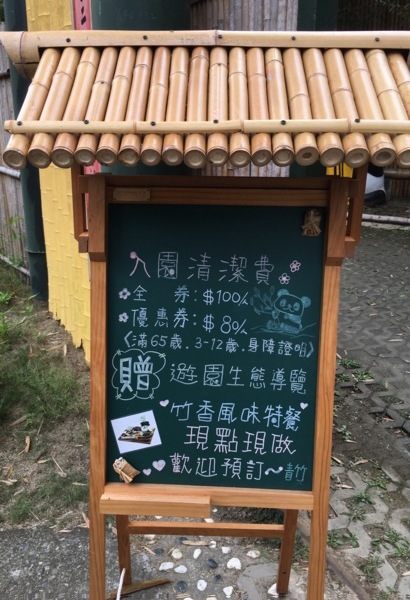 入園清潔費
全　券：$100/人
優惠券：$80/人
《滿65歲．3-12歲．身障證明》
贈 遊園生態導覽
竹香風味特餐
現點現做
歡迎預訂～青竹